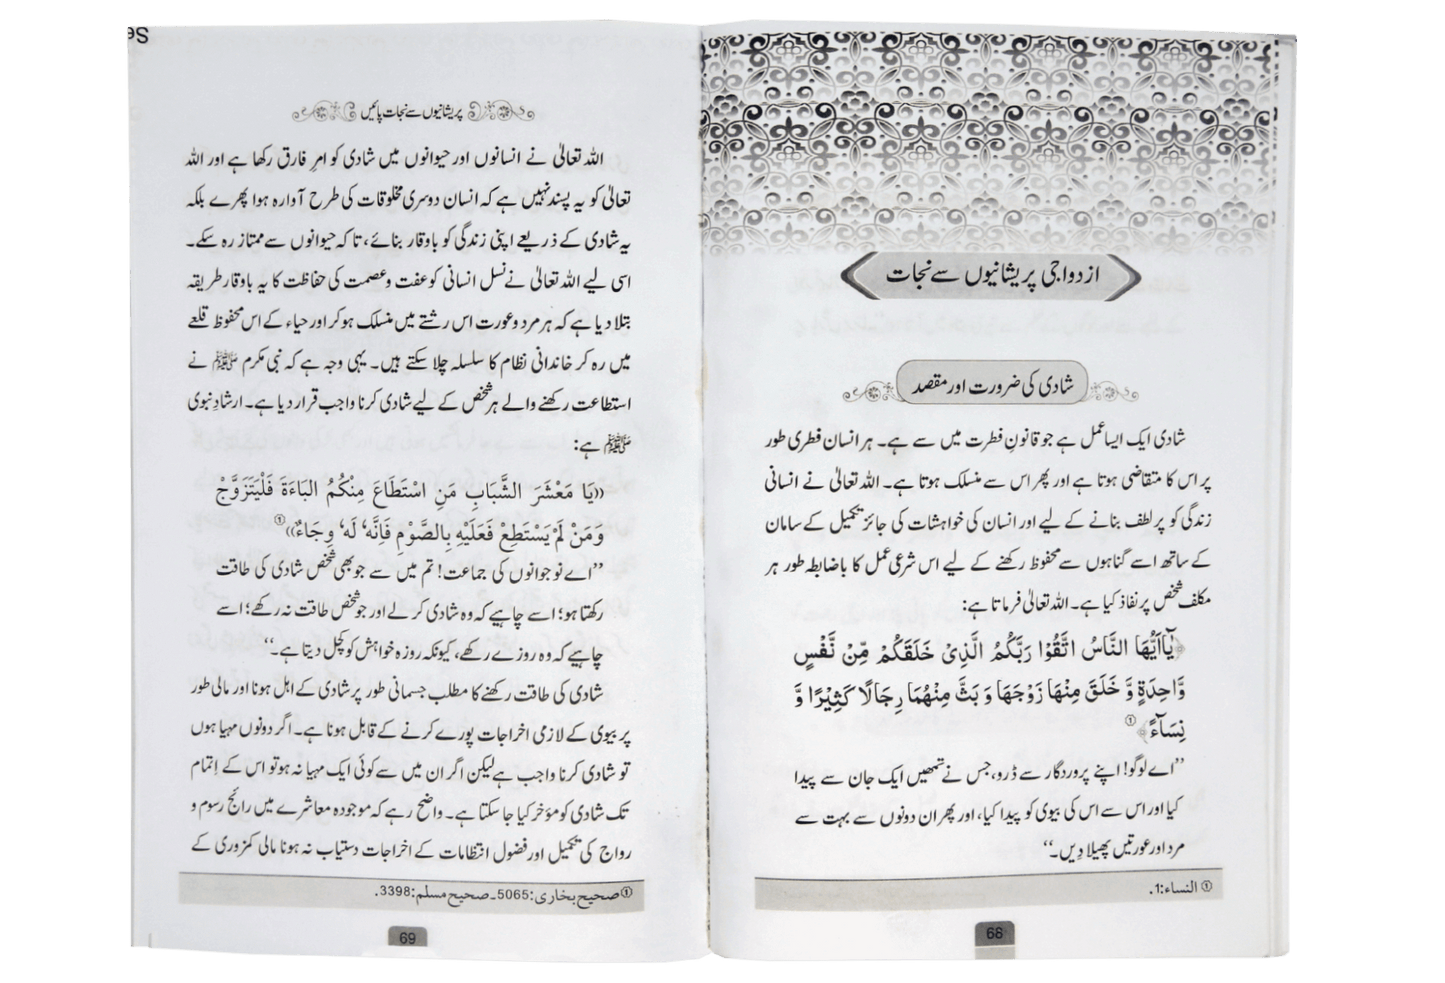 ازدواجی پریشانیوں سے نجات
شادی کی ضرورت اور مقصد
شادی ایک ایسا عمل ہے جو قانونِ فطرت میں سے ہے۔ ہر انسان فطری طور
پر اس کا متقاضی ہوتا ہے اور پھر اس سے منسلک ہوتا ہے۔ اللہ تعالیٰ نے انسانی
زندگی کو پر لطف بنانے کے لیے اور انسان کی خواہشات کی جائز تکمیل کے سامان
کے ساتھ اسے گناہوں سے محفوظ رکھنے کے لیے اس شرعی عمل کا باضابطہ طور ہر
مکلف شخص پر نفاذ کیا ہے۔ اللہ تعالیٰ فرماتا ہے:
﴿یٰۤاَیُّهَا النَّاسُ اتَّقُوْا رَبَّكُمُ الَّذِیْ خَلَقَكُمْ مِّنْ نَّفْسٍ
وَّاحِدَةٍ وَّ خَلَقَ مِنْهَا زَوْجَهَا وَ بَثَّ مِنْهُمَا رِجَالًا كَثِیْرًا وَّ
نِسَآءً﴾①
’’اے لوگو! اپنے پروردگار سے ڈرو، جس نے تمھیں ایک جان سے پیدا
کیا اور اس سے اس کی بیوی کو پیدا کیا، اور پھر ان دونوں سے بہت سے
مرد اور عورتیں پھیلا دِیں۔‘‘
① النساء:1.
68
پریشانیوں سے نجات پائیں
اللہ تعالیٰ نے انسانوں اور حیوانوں میں شادی کو امرِ فارق رکھا ہے اور اللہ
تعالیٰ کو یہ پسند نہیں ہے کہ انسان دوسری مخلوقات کی طرح آوارہ ہوا پھرے بلکہ
یہ شادی کے ذریعے اپنی زندگی کو باوقار بنائے، تا کہ حیوانوں سے ممتاز رہ سکے۔
اسی لیے اللہ تعالیٰ نے نسل انسانی کو عفت و عصمت کی حفاظت کا یہ باوقار طریقہ
بتلا دیا ہے کہ ہر مرد و عورت اس رشتے میں منسلک ہو کر اور حیاء کے اس محفوظ قلعے
میں رہ کر خاندانی نظام کا سلسلہ چلا سکتے ہیں۔ یہی وجہ ہے کہ نبی مکرم ﷺ نے
استطاعت رکھنے والے ہر شخص کے لیے شادی کرنا واجب قرار دیا ہے۔ ارشادِ نبوی
ﷺ ہے:
((يَا مَعْشَرَ الشَّبَابِ مَنِ اسْتَطَاعَ مِنْكُمُ البَاءَةَ فَلْيَتَزَوَّجْ
وَمَنْ لَمْ يَسْتَطِعْ فَعَلَيْهِ بِالصَّوْمِ فَإِنَّهٗ لَهٗ وِجَاءٌ))①
’’اے نوجوانوں کی جماعت! تم میں سے جو بھی شخص شادی کی طاقت
رکھتا ہو؛ اسے چاہیے کہ وہ شادی کر لے اور جو شخص طاقت نہ رکھے؛ اسے
چاہیے کہ وہ روزے رکھے، کیونکہ روزہ خواہش کو کچل دیتا ہے۔‘‘
شادی کی طاقت رکھنے کا مطلب جسمانی طور پر شادی کے اہل ہونا اور مالی طور
پر بیوی کے لازمی اخراجات پورے کرنے کے قابل ہونا ہے۔ اگر دونوں مہیا ہوں
تو شادی کرنا واجب ہے لیکن اگر ان میں سے کوئی ایک مہیا نہ ہو تو اس کے اِتمام
تک شادی کو مؤخر کیا جا سکتا ہے۔ واضح رہے کہ موجودہ معاشرے میں رائج رسوم و
رواج کی تکمیل اور فضول انتظامات کے اخراجات دستیاب نہ ہونا مالی کمزوری کے
① صحیح بخاری:5065۔ صحیح مسلم:3398.
69